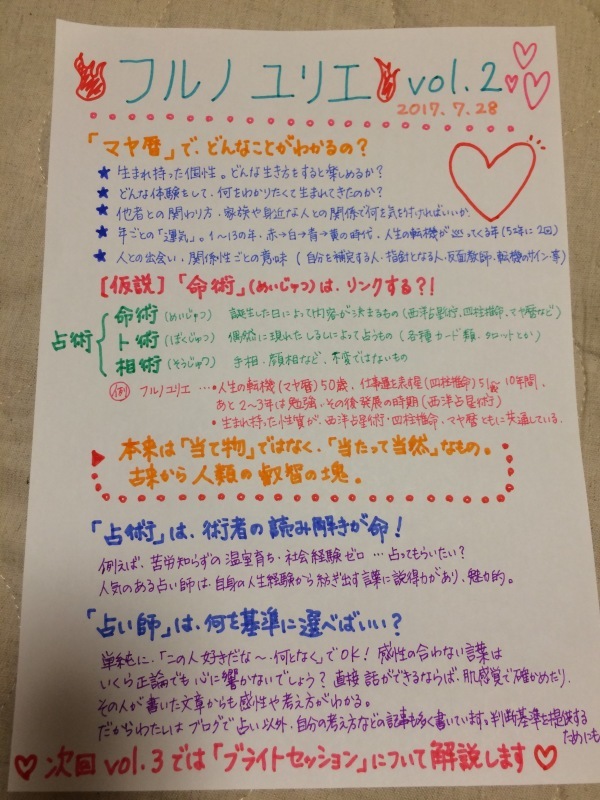 フルノ ユリエ vol.2
2017.7.28
「マヤ暦」で、どんなことがわかるの？
★ 生まれ持った個性。どんな生き方をすると楽しめるか？
★ どんな体験をして、何をわかりたくて生まれてきたのか？
★ 他者との関わり方、家族や身近な人との関係で何を気を付ければいいか
★ 年ごとの「運気」。1〜13の年・赤→白→青→黄の時代・人生の転機が巡ってくる年(52年に2回)
★ 人との出会い、関係性ごとの意味（自分を補完する人・指針となる人・反面教師・転機のサイン・等）
[仮説]「命術」(めいじゅつ)は、リンクする？!
占術
命術(めいじゅつ) 誕生した日によって内容が決まるもの(西洋占星術、四柱推命、マヤ暦など)
卜術(ぼくじゅつ) 偶然に現れたしるしによって占うもの(各種カード類・タロットとか)
相術(そうじゅつ) 手相・顔相など、不変ではないもの
例 フルノユリエ …・人生の転機(マヤ暦)50歳、仕事運を表程(四柱推命)51歳〜10年間、
あと2〜3年は勉強・その後発展の時期(西洋占星術)
・生まれ持った性質が、西洋占星術・四柱推命、マヤ暦ともに共通している。
▶ 本来は「当て物」ではなく、「当たって当然」なもの。
古来から人類の叡智の塊。
「占術」は、術者の読み解きが命！
例えば、苦労知らずの温室育ち・社会経験ゼロ …占ってもらいたい？
人気のある占い師は、自身の人生経験から紡ぎ出す言葉に説得力があり、魅力的。
「占い師」は、何を基準に選べばいい？
単純に、「この人好きだな〜、何となく」でOK！ 感性の合わない言葉は
いくら正論でも心に響かないでしょう？ 直接話ができるならば、肌感覚で確かめたり、
その人が書いた文章からも感性や考え方がわかる。
だからわたしはブログで占い以外、自分の考え方などの記事も多く書いています。判断基準を提供する
ためにも
♡ 次回 vol.3では「ブライトセッション」について解説します ♡